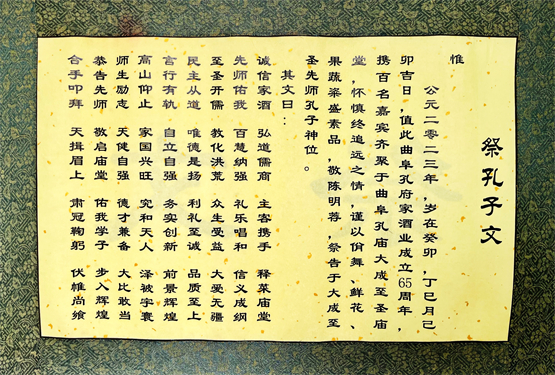 祭孔子文
惟
公元二零二三年，岁在癸卯，丁巳月己
卯吉日，值此曲阜孔府家酒业成立65周年，
携百名嘉宾齐聚于曲阜孔庙大成至圣庙
堂，怀慎终追远之情，谨以佾舞、鲜花、
果蔬粢盛素品，敬陈明荐，祭告于大成至
圣先师孔子神位。
其文曰：
诚信家酒 弘道儒商 主客携手 释菜庙堂
先师佑我 百慧纳强 礼乐唱和 信义成纲
至圣开儒 教化洪荒 众生受益 大爱无疆
民主从道 唯德是扬 利礼至诚 品质至上
言行有轨 自立自强 务实创新 前景辉煌
高山仰止 家国兴旺 究和天人 泽被宇寰
师生励志 天健自强 德才兼备 大比敢当
恭告先师 敬启庙堂 佑我学子 步入辉煌
合手叩拜 天揖眉上 肃冠鞠躬 伏帷尚飨